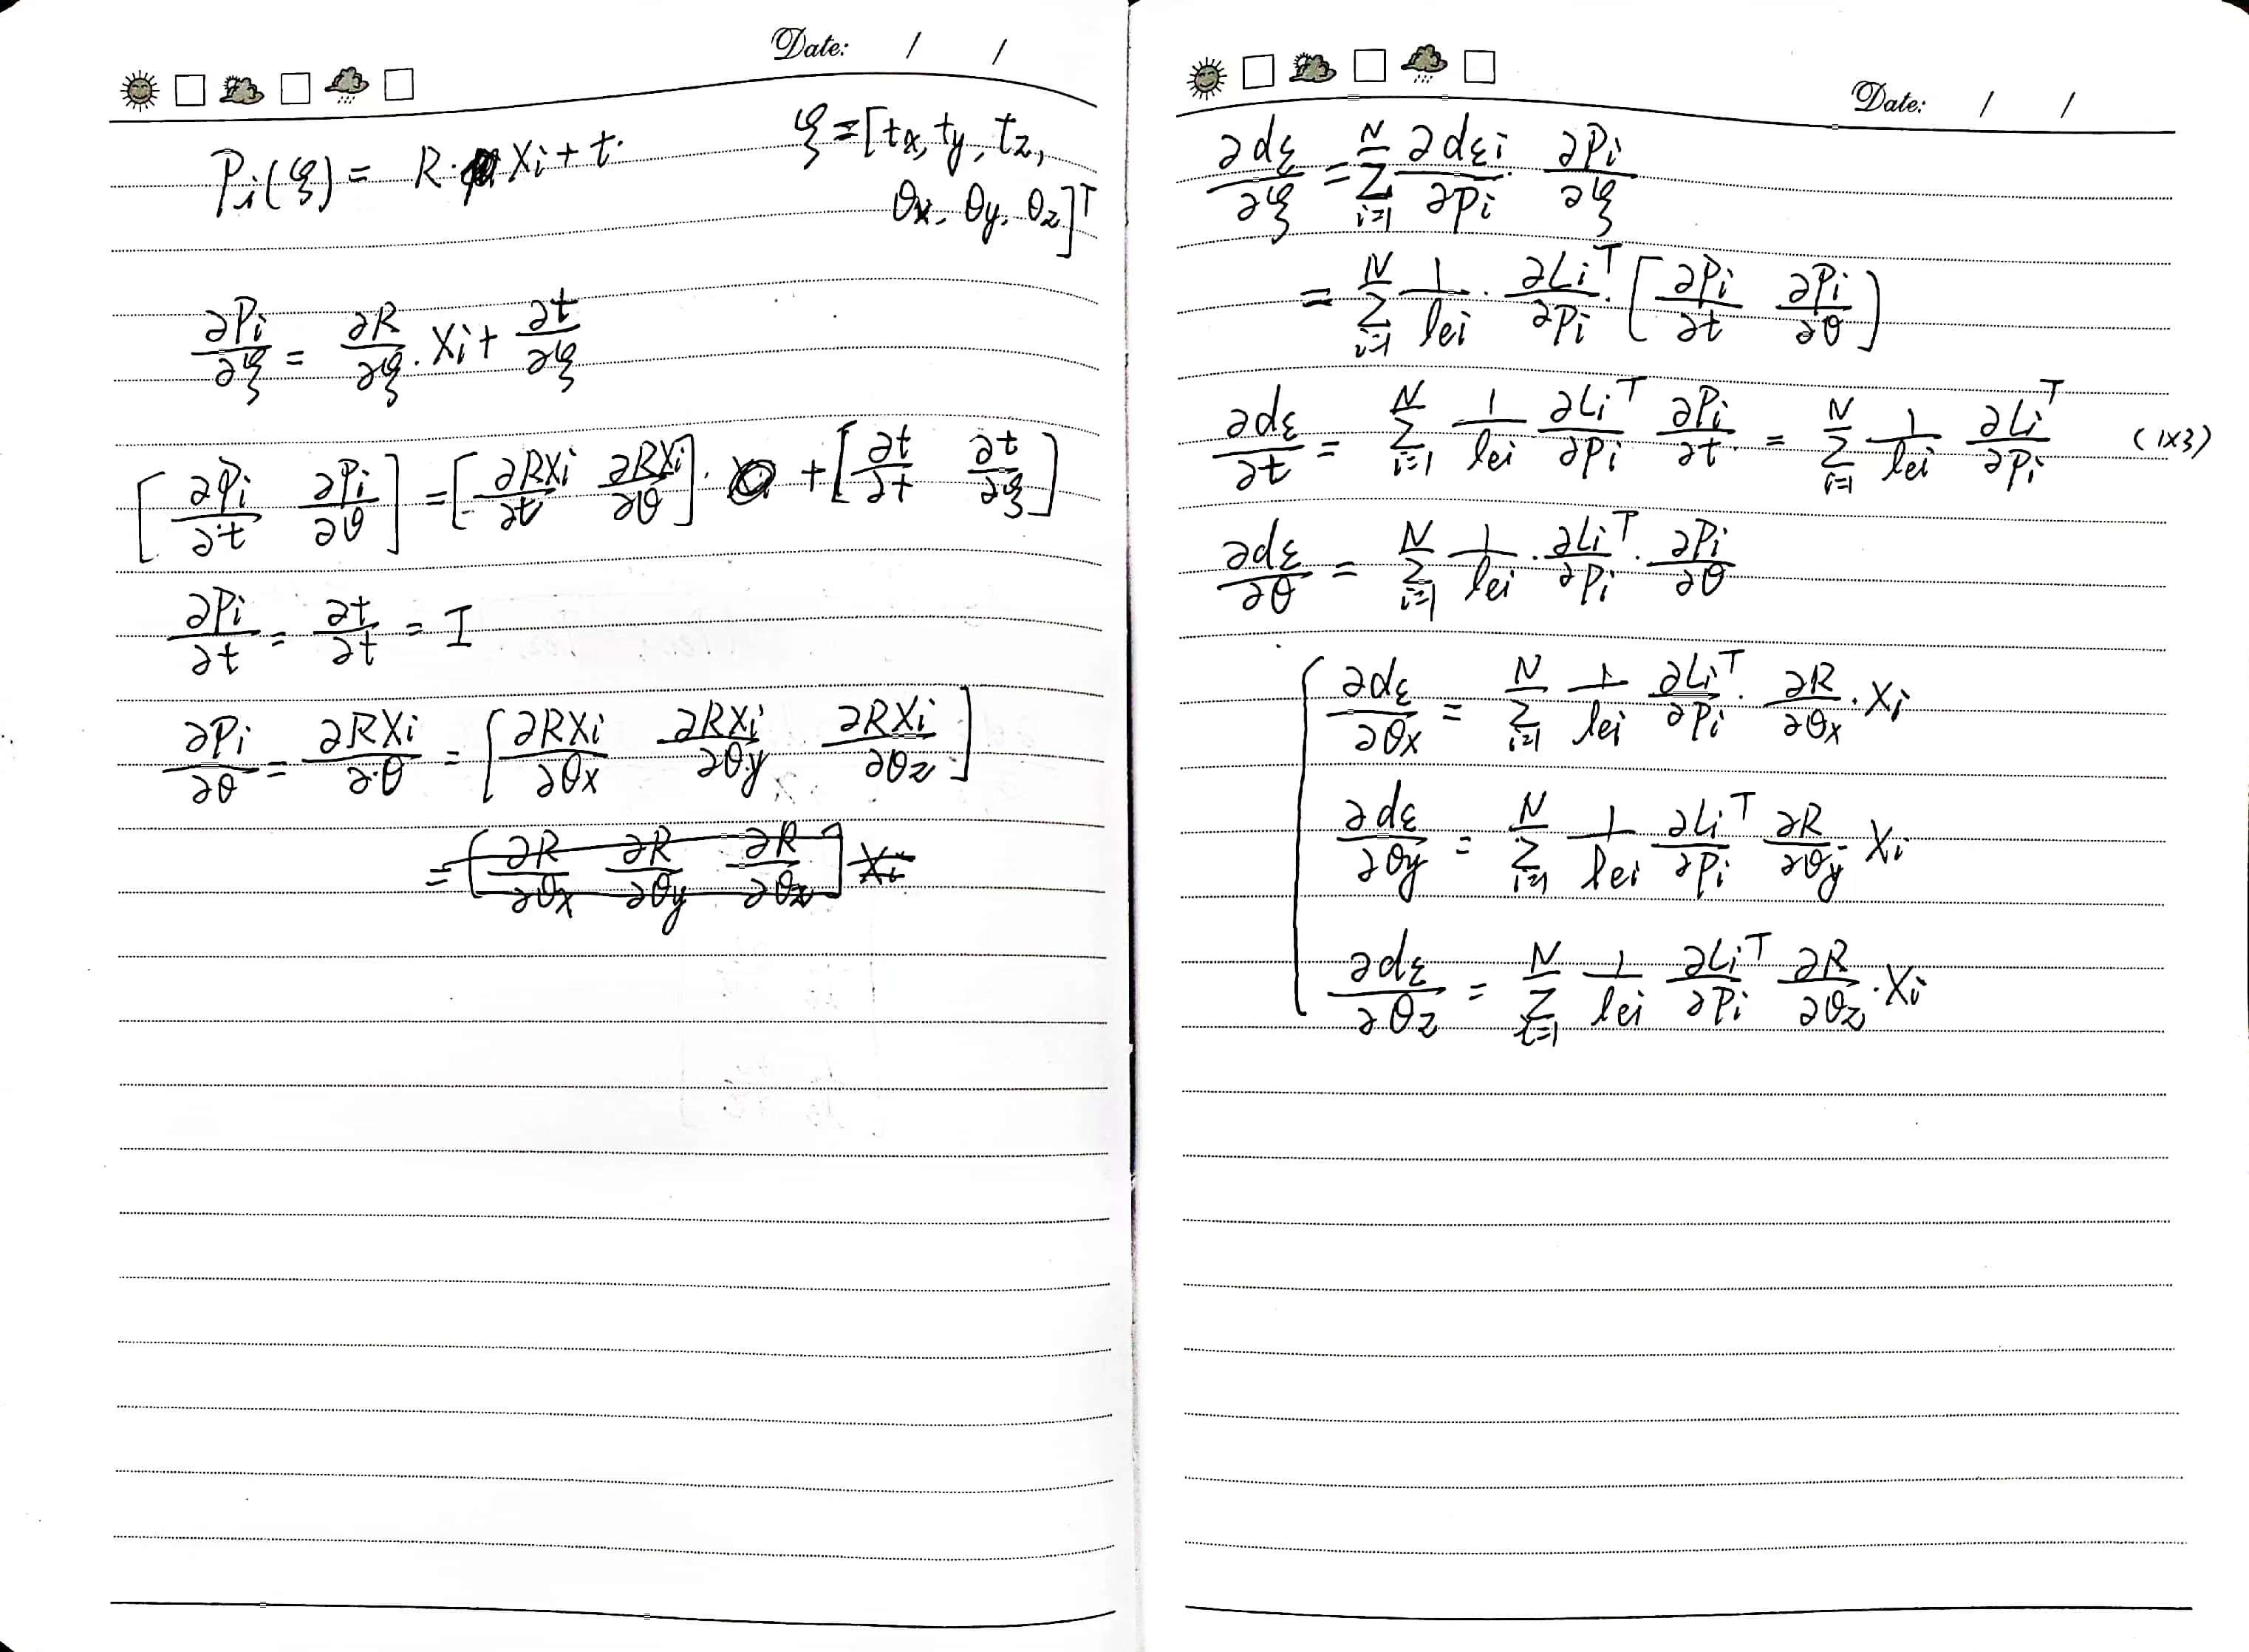 Date: / /
Pi(ξ) = R · Xi + t. ξ = [tx, ty, tz,
θx, θy, θz]ᵀ
∂Pi/∂ξ = ∂R/∂ξ · Xi + ∂t/∂ξ
[∂Pi/∂t ∂Pi/∂θ] = [∂RXi/∂t ∂RXi/∂θ] · + [∂t/∂t ∂t/∂ξ]
∂Pi/∂t = ∂t/∂t = I
∂Pi/∂θ = ∂RXi/∂θ = [∂RXi/∂θx ∂RXi/∂θy ∂RXi/∂θz]
= [∂R/∂θx ∂R/∂θy ∂R/∂θz] Xi
Date: / /
∂dε/∂ξ = Σ_{i=1}^{N} ∂dεi/∂Pi · ∂Pi/∂ξ
= Σ_{i=1}^{N} 1/lei · ∂Liᵀ/∂Pi · [∂Pi/∂t ∂Pi/∂θ]
∂dε/∂t = Σ_{i=1}^{N} 1/lei ∂Liᵀ/∂Pi ∂Pi/∂t = Σ_{i=1}^{N} 1/lei ∂Liᵀ/∂Pi (1×3)
∂dε/∂θ = Σ_{i=1}^{N} 1/lei · ∂Liᵀ/∂Pi · ∂Pi/∂θ
∂dε/∂θx = Σ_{i=1}^{N} 1/lei ∂Liᵀ/∂Pi · ∂R/∂θx · Xi
∂dε/∂θy = Σ_{i=1}^{N} 1/lei ∂Liᵀ/∂Pi ∂R/∂θy Xi
∂dε/∂θz = Σ_{i=1}^{N} 1/lei ∂Liᵀ/∂Pi ∂R/∂θz · Xi